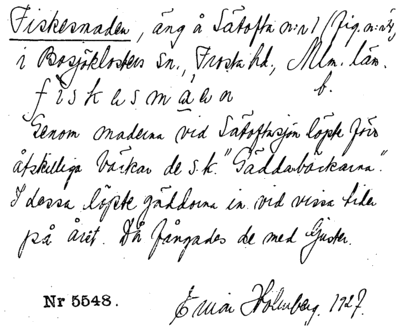 Fiskesmaden, äng å Sätofta n:r 1 (fig. n:r 4),
i Bosjöklosters sn., Frosta hd., Mlm. län.
fiskasmaen b.
Genom maderna vid Sätoftasjön löpte förr
åtskilliga bäckar de s.k. "Gäddabäckarna".
I dessa löpte gäddorna in vid vissa tider
på året. Då fångades de med ljuster.
Nr 5548. Einar Holmberg. 1927.